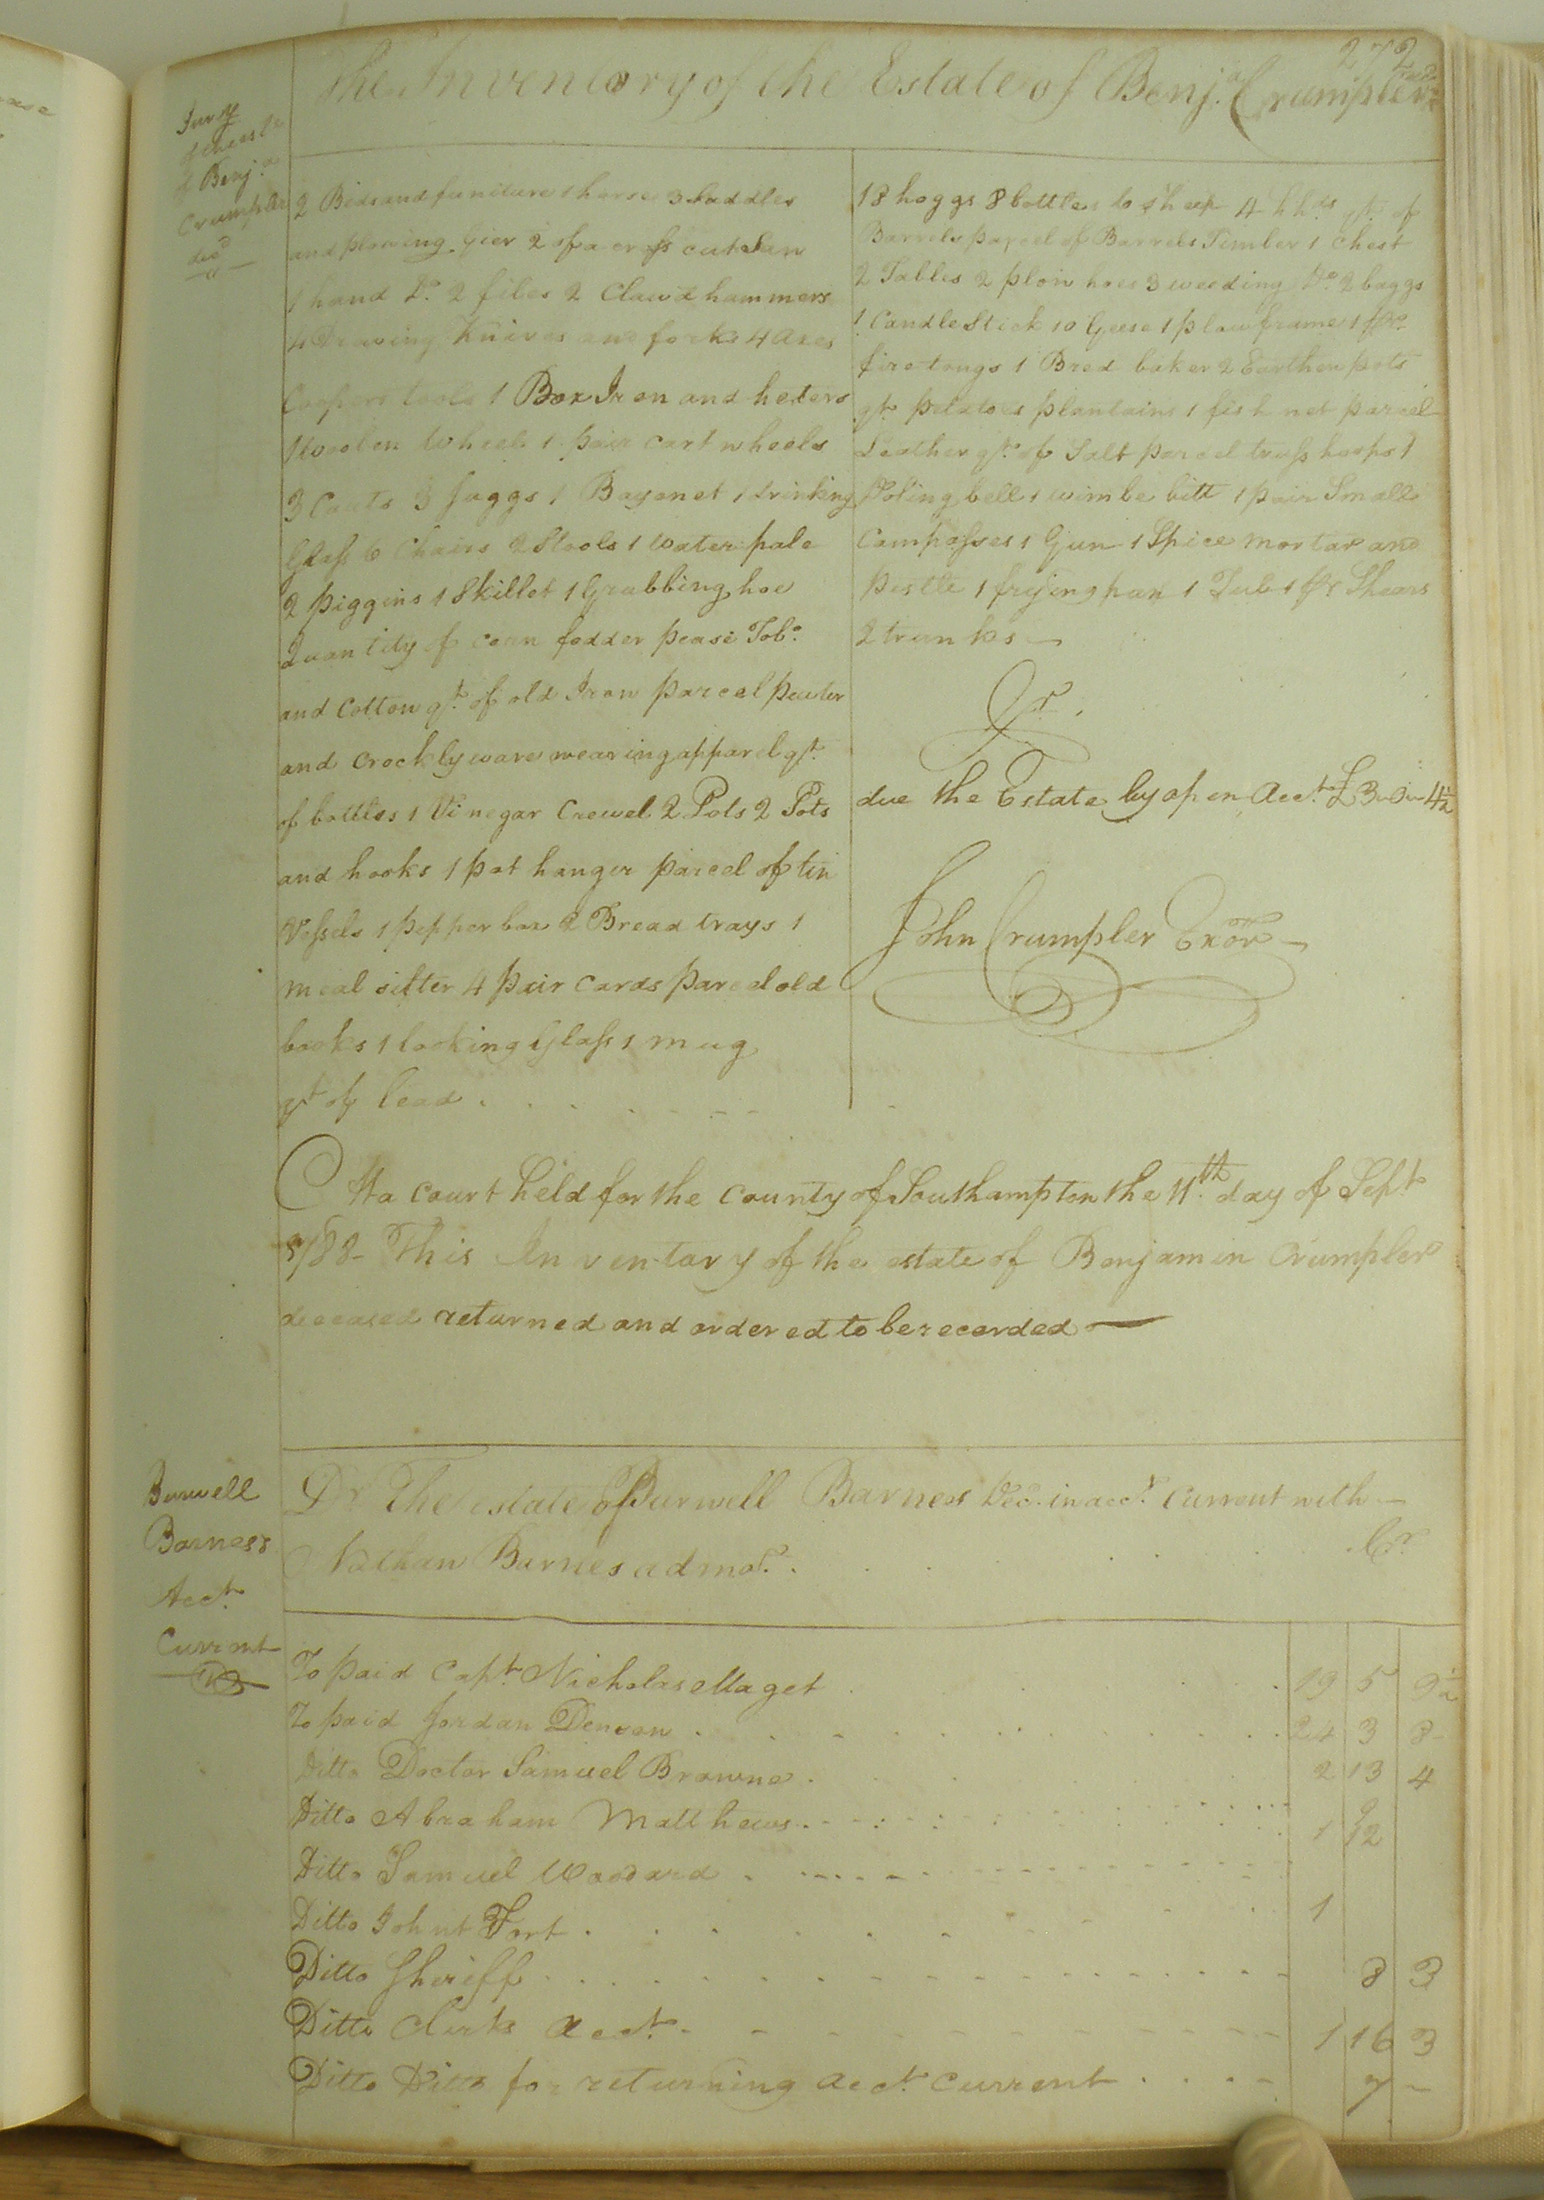 272
The Inventory of the Estate of Benj.a Crumpler
Invy
of
of Benj.a
Crumpler
decd
2 Beds and funiture 1 horse 3 Saddles
and plowing Gier 2 of a cross cut
1 hand Do. 2 files 2 Claw'd hammers
4 Drawing knives and forks 4 axes
Coopers tools 1 Box Iron and heters
1 Woolen Wheel 1 pair cart wheels
3 Casts 3 Juggs 1 Bayonet 1 drinking
Glass 6 Chairs 2 Stools 1 water pale
2 piggins 1 Skillet 1 Grubbing hoe
Quantity of corn fodder pease Tobo.
and Cotton qt. of old Iron parcel pewter
and crockly ware wearing apparel qt.
of bottles 1 Vinegar Crewel 2 Pots 2 Pots
and hooks 1 pot hanger parcel of tin
Vessels 1 pepper box 2 Bread trays 1
meal sifter 4 pair cards parcel old
books 1 looking Glass 1 mug
qt of lead
18 hoggs 8 bottles 10 sheep 4 hhds qt. of
Barrels parcel of Barrels Timber 1 Chest
2 Tables 2 plow hoes 3 weeding Do 2 baggs
1 Candlestick 10 Geese 1 plow frame 1 pr.
fire tongs 1 Bred baker 2 Earthen pots
qt. potatoes plantains 1 fish net parcel
Leather qt. of Salt parcel truss hoops 1
Toling bell 1 wimbe bitt 1 pair Small
Compasses 1 Gun 1 Spice mortar and
Pestle 1 frying pan 1 Tub 1 pr Shears
2 trunks
Cr.
due the Estate by open Acct. £3 0 4½
John Crumpler Exor
At a court held for the county of Southampton the 11th day of Sept
1788 This Inventory of the estate of Benjamin Crumpler
deceased returned and ordered to be recorded
Burwell
Barness
Acct.
Current
Dr The Estate of Burwell Barnes Decd. in acct. Current with
Nathan Barnes admor. Cr.
To paid Capt. Nicholas Maget 19 5 9½
To paid Jordan Denson 24 3 8
Ditto Doctor Samuel Browne 2 13 4
Ditto Abraham Matthews 9
Ditto Samuel Woodard 1 12
Ditto John Fort 1
Ditto Sheriff 8 3
Ditto Clerks Acct. 1 16 3
Ditto Ditto for returning Acct. Current 7